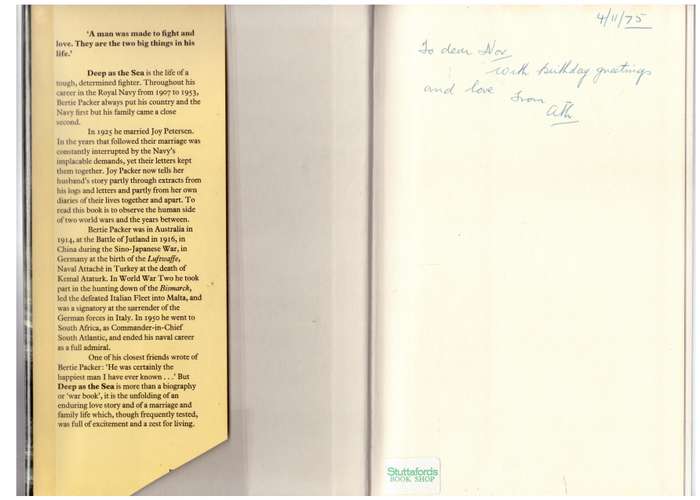 'A man was made to fight and
love. They are the two big things in his
life.'
Deep as the Sea is the life of a
tough, determined fighter. Throughout his
career in the Royal Navy from 1907 to 1953,
Bertie Packer always put his country and the
Navy first but his family came a close
second.
In 1925 he married Joy Petersen.
In the years that followed their marriage was
constantly interrupted by the Navy's
implacable demands, yet their letters kept
them together. Joy Packer now tells her
husband's story partly through extracts from
his logs and letters and partly from her own
diaries of their lives together and apart. To
read this book is to observe the human side
of two world wars and the years between.
Bertie Packer was in Australia in
1914, at the Battle of Jutland in 1916, in
China during the Sino-Japanese War, in
Germany at the birth of the Luftwaffe,
Naval Attaché in Turkey at the death of
Kemal Ataturk. In World War Two he took
part in the hunting down of the Bismarck,
led the defeated Italian Fleet into Malta, and
was a signatory at the surrender of the
German forces in Italy. In 1950 he went to
South Africa, as Commander-in-Chief
South Atlantic, and ended his naval career
as a full admiral.
One of his closest friends wrote of
Bertie Packer: 'He was certainly the
happiest man I have ever known . . .' But
Deep as the Sea is more than a biography
or 'war book', it is the unfolding of an
enduring love story and of a marriage and
family life which, though frequently tested,
was full of excitement and a zest for living.
4/11/75
To dear Nov
with birthday greetings
and love from
Stuttafords
BOOK SHOP